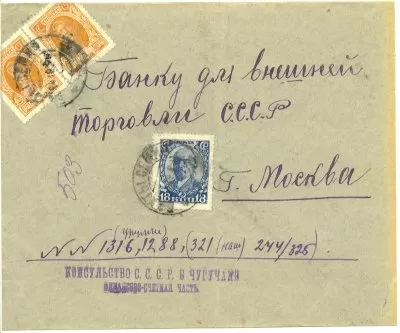 Банку для внешней
торговли С.С.С.Р
503
18 18
г. Москва
NN 1316, 1288, (321 (наш) 244/325)
КОНСУЛЬСТВО С. С. С. Р. В ЧУГУЧАКЕ
СЧЕТНАЯ ЧАСТЬ.